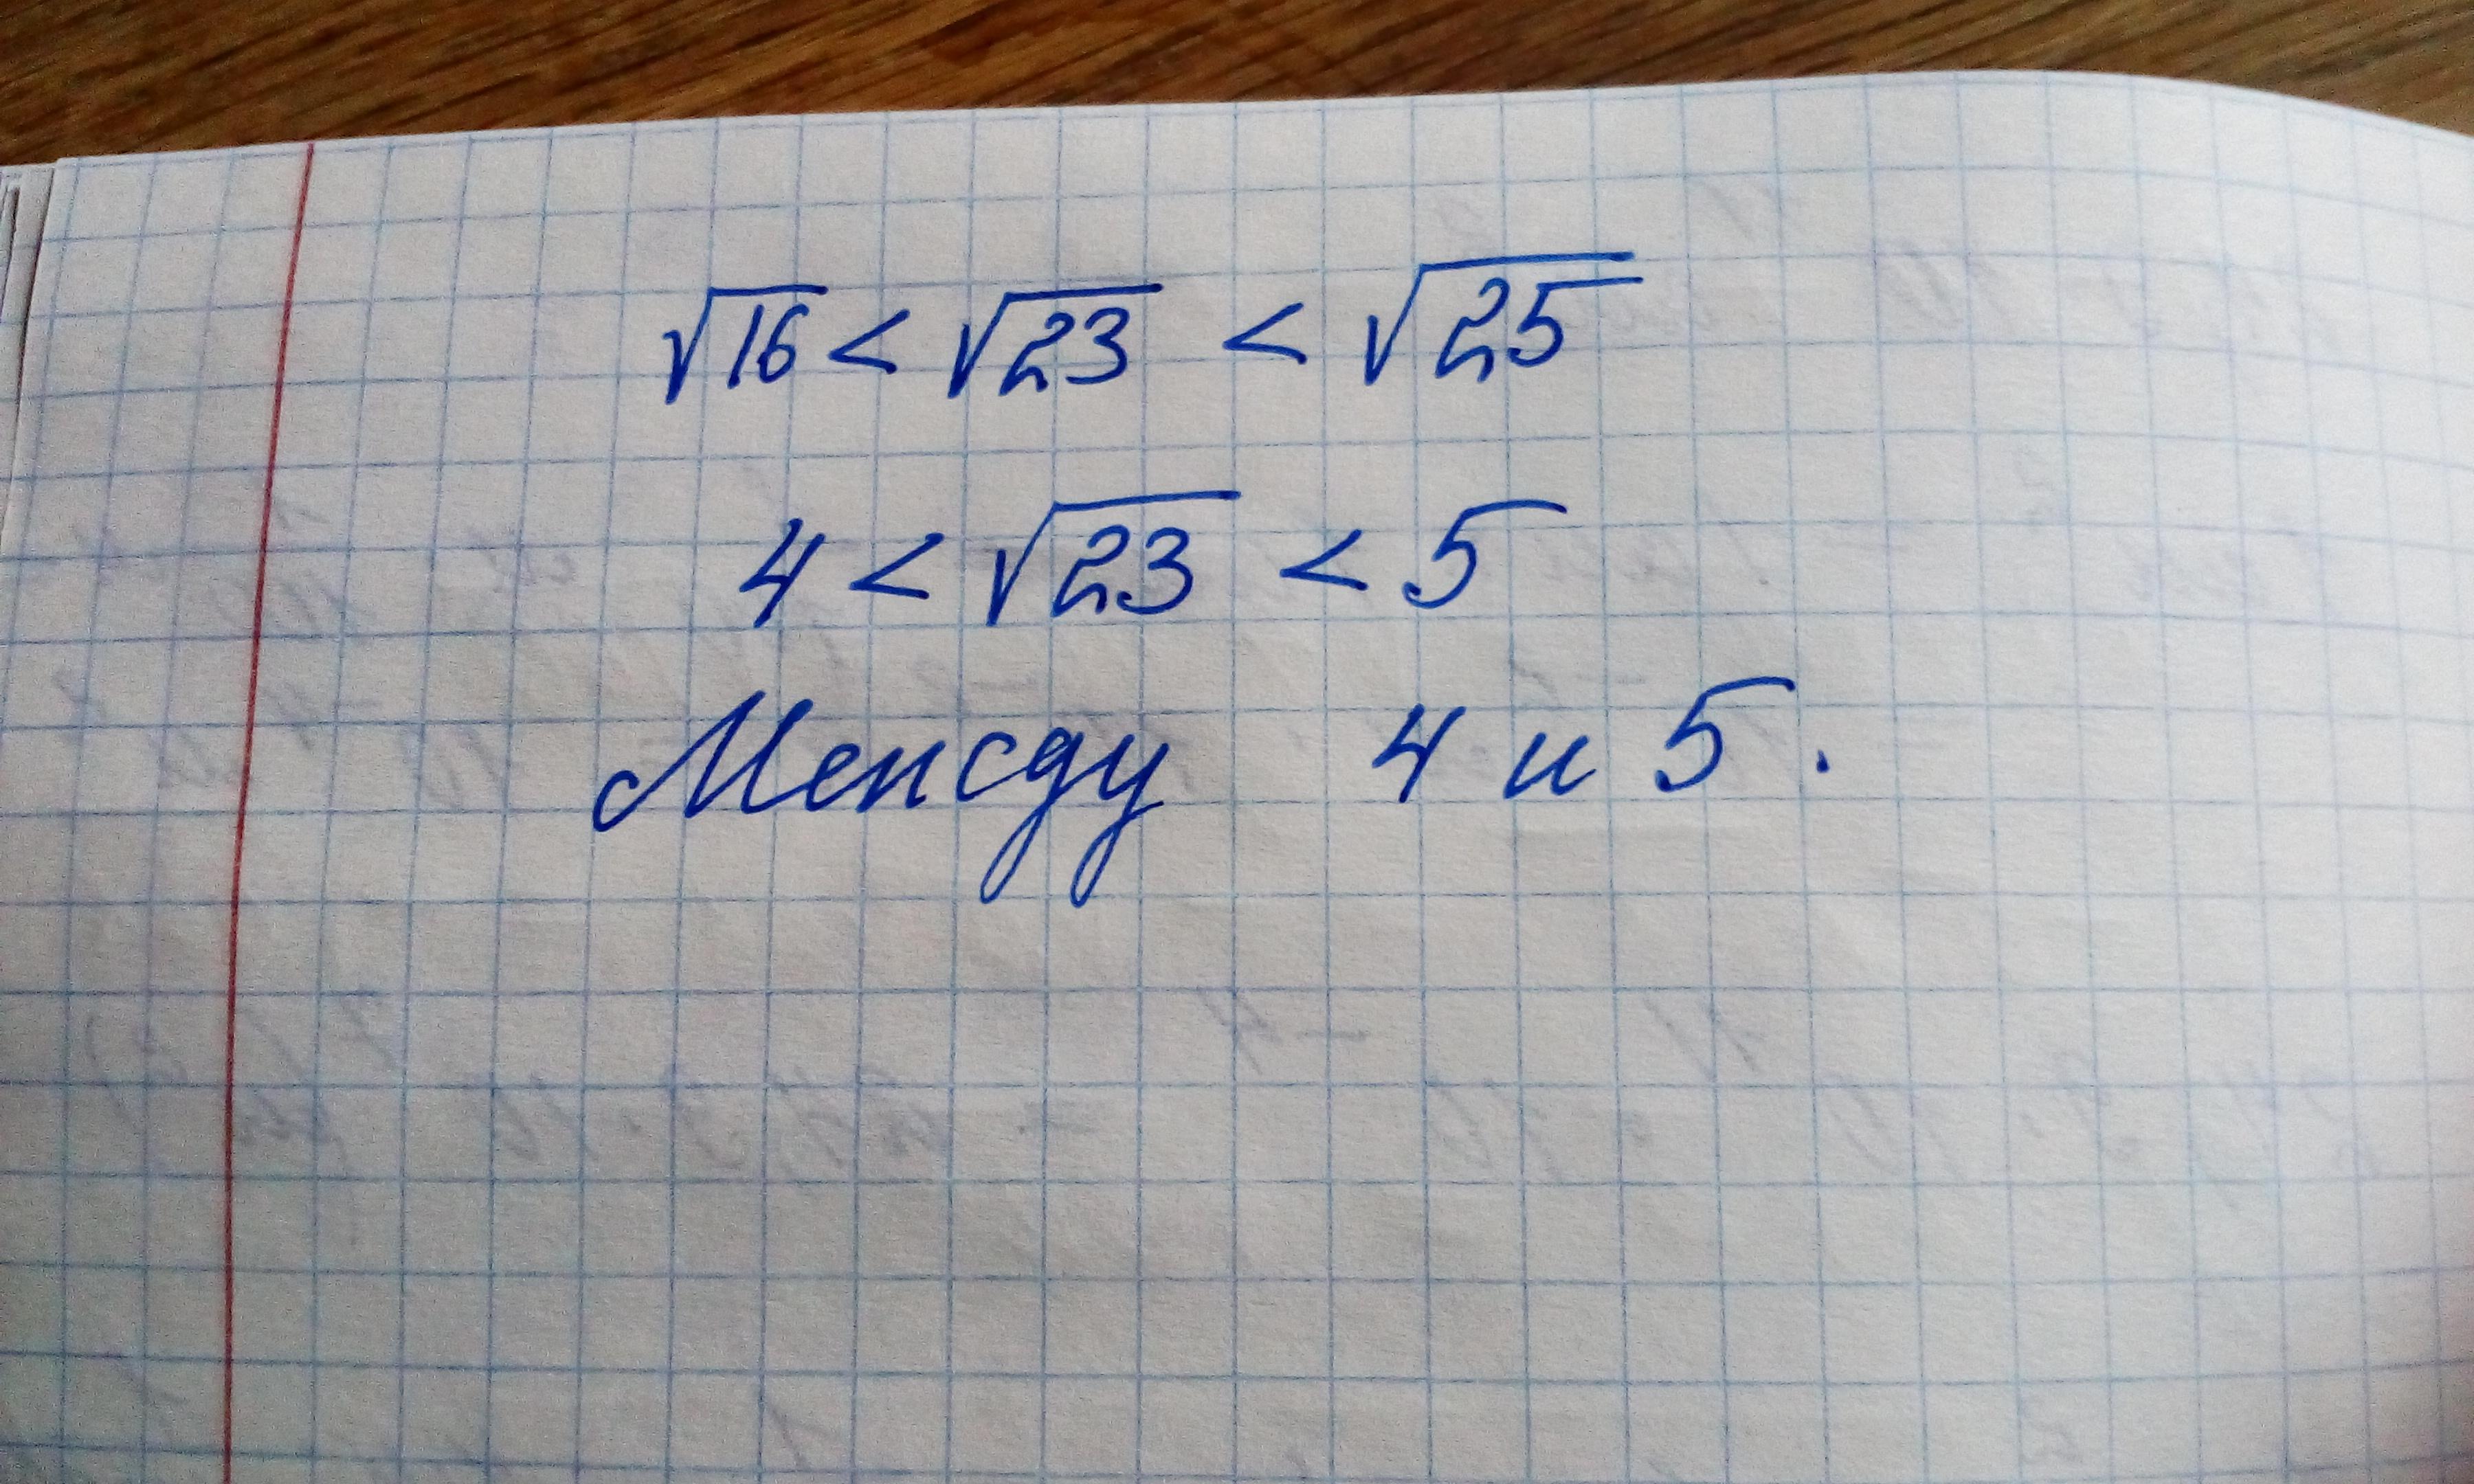 √16 < √23 < √25
4 < √23 < 5
Между 4 и 5.